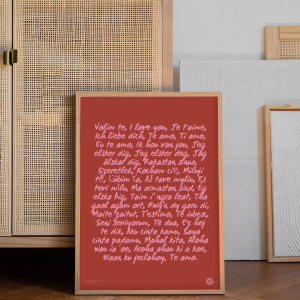 Volim te, I love you, Je t'aime,
Ich liebe dich, Te amo, Ti amo,
Eu te amo, Ik hou van jou, Jeg
elsker dig, Jeg elsker deg, Jag
älskar dig, Rakastan sinua,
Szeretlek, Kocham cię, Miluji
tě, Ľúbim ťa, Aš tave myliu, Es
tevi mīlu, Ma armastan sind, Ég
elska þig, Taim i ngra leat, Tha
gaol agam ort, Rwy'n dy garu di,
Maite zaitut, T'estimo, Te iubesc,
Seni seviyorum, Të dua, Ez hej
te dik, Aku cinta kamu, Saya
cinta padamu, Mahal kita, Aloha
wau ia 'oe, Aroha ahau ki a koe,
Waan ku jeclahay, Te amo.